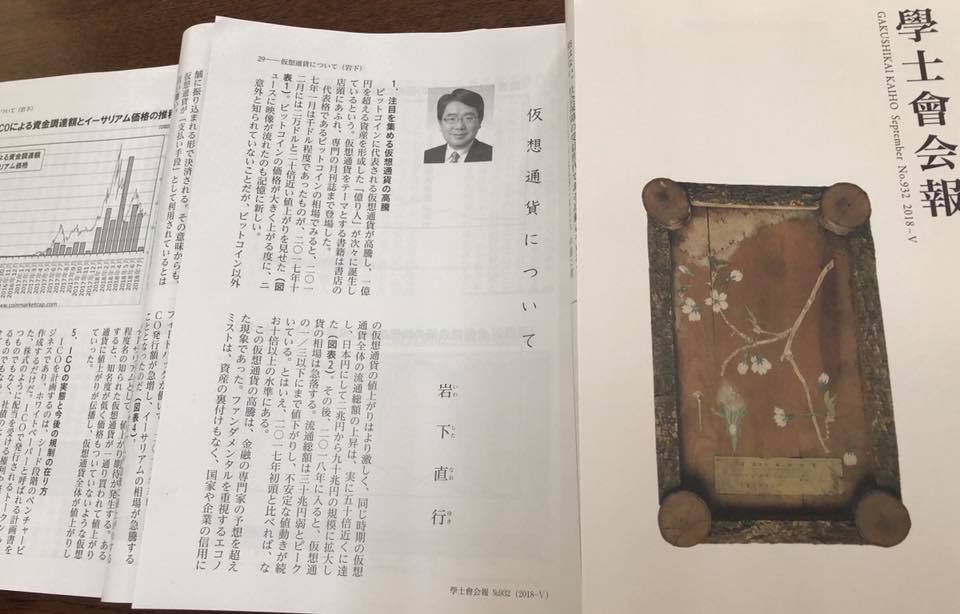 學士會会報
GAKUSHIKAI KAIHO September No.932 2018-Ⅴ
29──仮想通貨について（岩下）
仮想通貨について
岩下直行
いわ した なお ゆき
1．注目を集める仮想通貨の高騰
ビットコインに代表される仮想通貨が高騰し、一億
円を超える資産を形成した「億り人」が次々に誕生し
ているという。仮想通貨をテーマとする書籍は書店の
店頭にあふれ、専門の月刊誌まで登場した。
代表格であるビットコインの相場でみると、二〇一
七年一月は千ドル程度であったものが、二〇一七年十
二月には二万ドルと二十倍近い値上がりを見せた（図
表1）。ビットコインの価格が大きく上がる度に、ニ
ュースに映像が流れたのも記憶に新しい。
意外と知られていないことだが、ビットコイン以外
の仮想通貨の値上がりはより激しく、同じ時期の仮想
通貨全体の流通総額の上昇は、実に五十倍近くに達
し、日本円にして二兆円から九十兆円の規模に拡大し
た（図表2）。その後、二〇一八年に入ると、仮想通
貨の相場は急落する。流通総額は三十兆円弱とピーク
の一／三以下にまで値下がりし、不安定な値動きが続
いている。とはいえ、二〇一七年初頭と比べれば、な
お十倍以上の水準にある。
この仮想通貨の高騰は、金融の専門家の予想を超え
た現象であった。ファンダメンタルを重視するエコノ
ミストは、資産の裏付けもなく、国家や企業の信用に
學士會会報 No.932（2018-Ⅴ）
ついて（岩下）
COによる資金調達額とイーサリアム価格の推移
よる資金調達額
リアム価格
www.coinmarketcap.com
舗に振り込まれる形で決済される。その意味からも、
仮想通貨が「支払い手段」として利用されているとは
CO発行額が急増し、イーサリアムの相場が急騰する
こととなったのだ（図表4）。
程度名の知られた仮想通貨が一通り買われて値上がり
すると、知名度が低く価格もついていないような仮想
通貨に値上がりが伝播し、仮想通貨全体が値上がりし
ていった。
5．ICOの実態と今後の規制の在り方
ICOを計画するのは、シード段階のベンチャービ
ジネスであり、ホワイトペーパーと呼ばれる計画書を
作成するだけだ。ICOで発行されるトークン